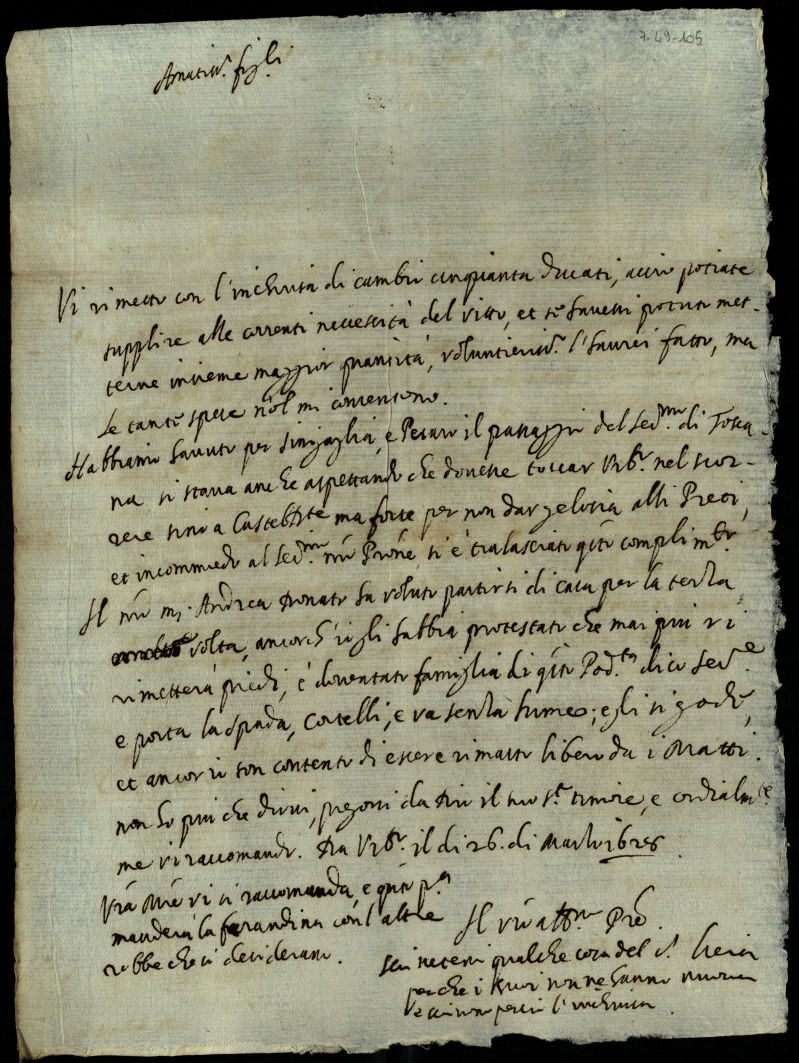 7-49-105
Amatis.mi figli
Vi rimetto con l'inchiusa di cambio cinquanta ducati, acciò potiate
supplire alle correnti necessità del vitto, et se havessi potuto met-
terne insieme maggior quantità, voluntieris.e l'haurei fatto, ma
le tante spese nol mi consentono.
Habbiamo havuto per Sinigaglia, e Pesaro il passaggio del Ser.mo di Tosca-
na si stava anche aspettando che dovesse toccar Urb.o nel scor-
rere sino a Casteldte ma forse per non dar gelosia alli Preti,
et incommodo al Ser.mo nro Prone, si è tralasciato qsto complim.to
Il nro m. Andrea Donato ha voluto partirsi di casa per la terza
volta, ancorch'io gli habbia protestato che mai più vi
rimetterà piedi, è doventato famiglia di qsto Pod.tà dico Ser.e
e porta la spada, cortelli, e va senza; egli si gode,
et ancor io son contento di essere rimasto libero da i Matti.
non so più che dirvi, pregovi da Dio il suo s.to timore, e cordialm.te
me vi raccomando. Da Urb.o il di 26. di Marzo
Vra Mre vi si raccomanda, e qto p.a
manderà la ferandina con l'altre
robbe che si desiderano.
Il vro aff.mo Pre
qualche cosa del s.
perche i suoi non ne hanno nuova
l'inchiusa